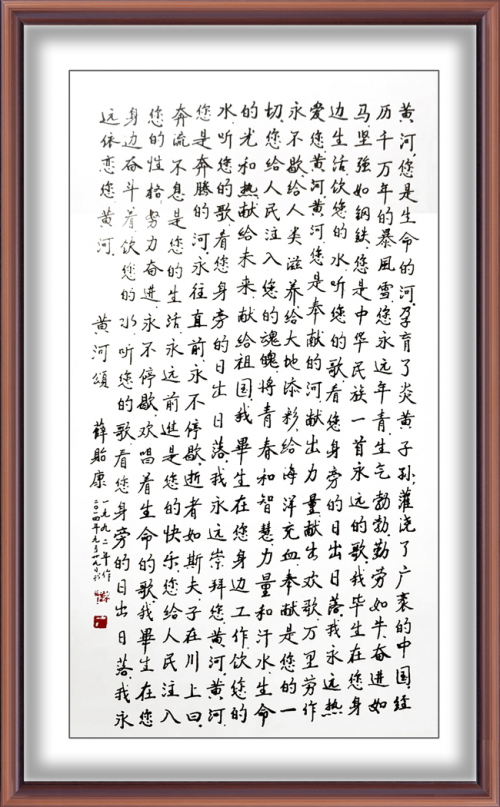 黄河您是生命的河.孕育了炎黄子孙.灌浇了广袤的中国.经
历千万年的暴風雪.您永远年青生气勃勃勤劳如牛.奋進如
马坚强如钢铁.您是中华民族一首永远的歌.我毕生在您身
边生活饮您的水.听您的歌看您身旁的日出日落.我永远热
爱您黄河黄河.您是奉献的河献出力量献出欢歌.万里劳作
永不歇给人类滋养给大地添彩给海洋充血.奉献是您的一
切.您给人民注入您的魂魄.将青春和智慧.力量和汗水.生命
的光和热献给未来献给祖国.我畢生在您身边工作饮您的
水听您的歌看您身旁的日出日落.我永远崇拜您黄河.黄河
您是奔腾的河.永往直前.永不停歇.逝者如斯夫.子在川上曰.
奔流不息是您的生活.永远前進是您的快乐.您给人民注入
您的性格.努力奋进.永不停歇.欢唱着生命的歌.我畢生在您
身边奋斗着饮您的水.听您的歌看您身旁的日出日落.我永
远依恋您黄河.
黄河頌 薛貽康
一九九二年作
二〇一四年元月